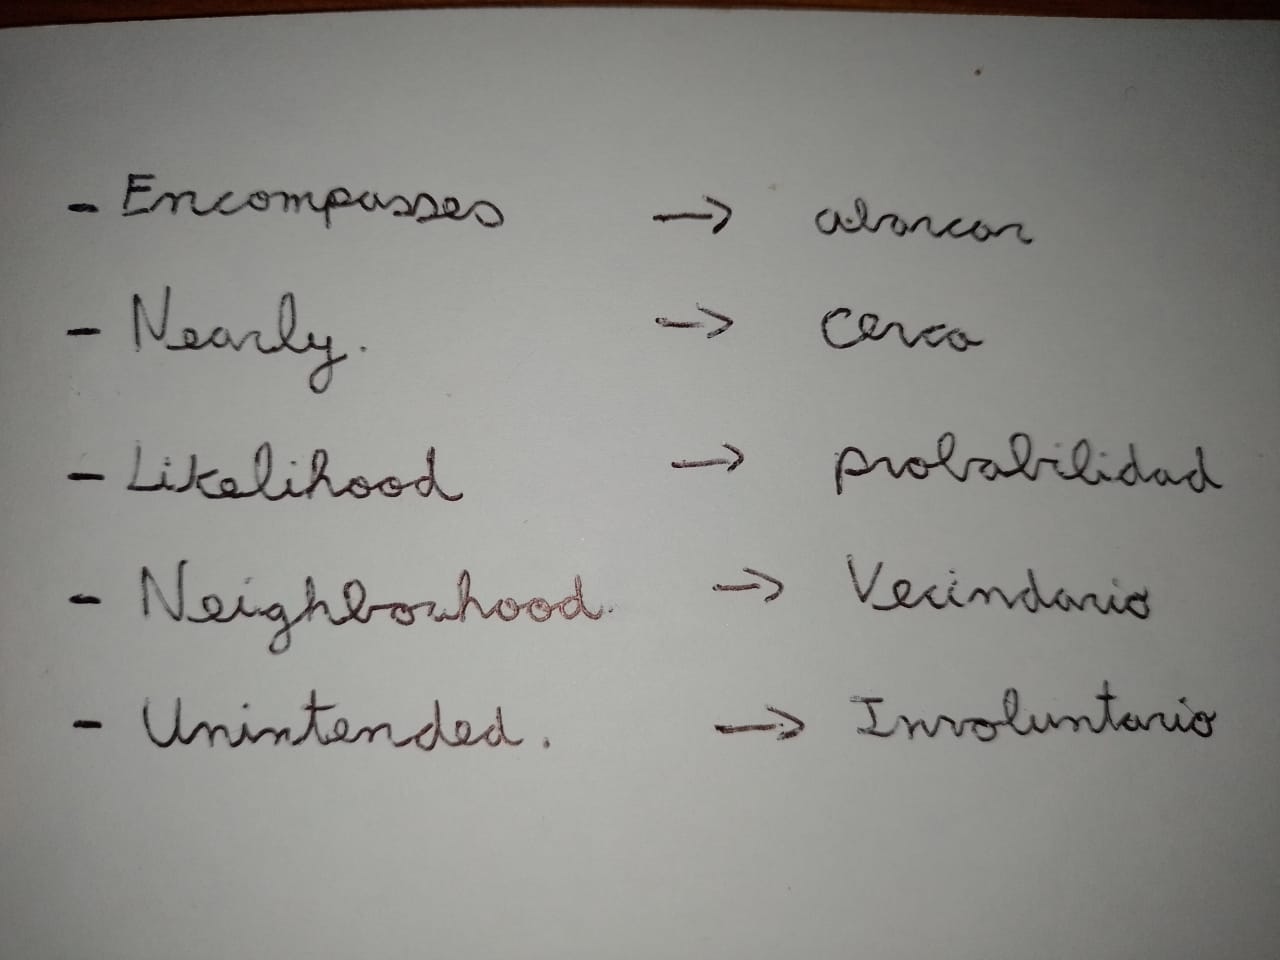 - Encompasses → abarcar
- Nearly. → Cerca
- Likelihood → probabilidad
- Neighbourhood. → Vecindario
- Unintended. → Involuntario